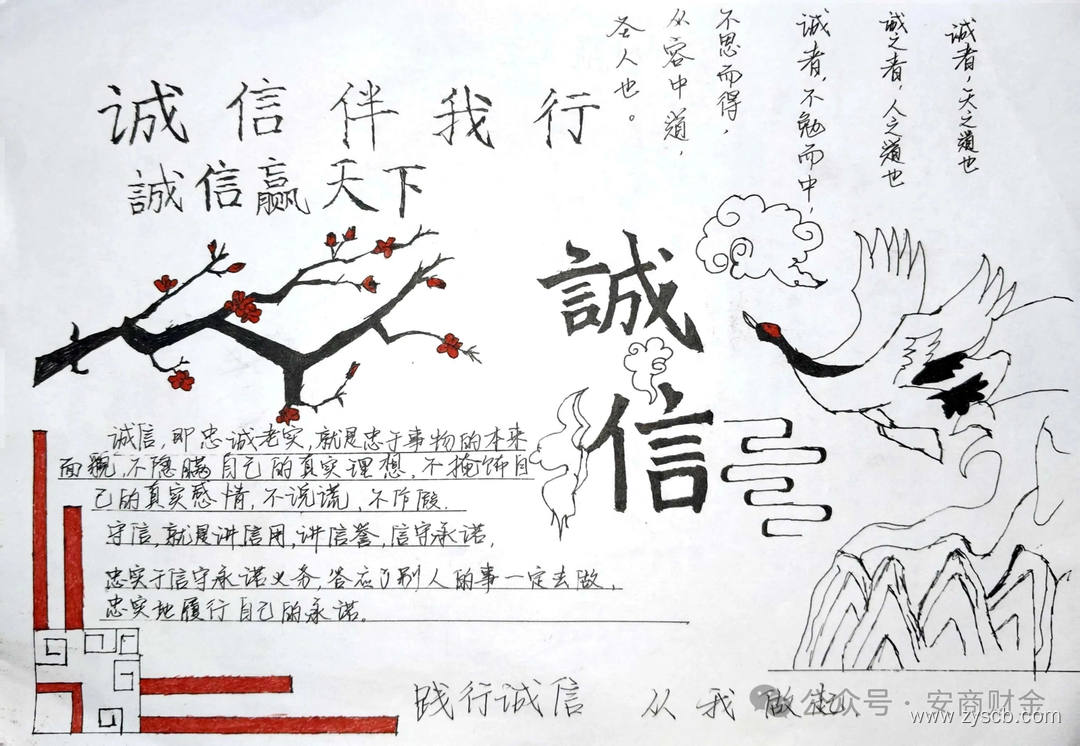 誠信伴我行
誠信赢天下
诚者，天之道也
诚之者，人之道也
诚者，不勉而中，
不思而得，
从容中道，
圣人也。
誠
信
诚信，即忠诚老实，就是忠于事物的本来
面貌，不隐瞒自己的真实理想，不掩饰自
己的真实感情，不说谎，不作假.
守信，就是讲信用，讲信誉，信守承诺，
忠实于信守承诺义务，答应了别人的事一定去做，
忠实地履行自己的承诺。
践行诚信 从我做起
公众号·安商财金
www.zyscb.com